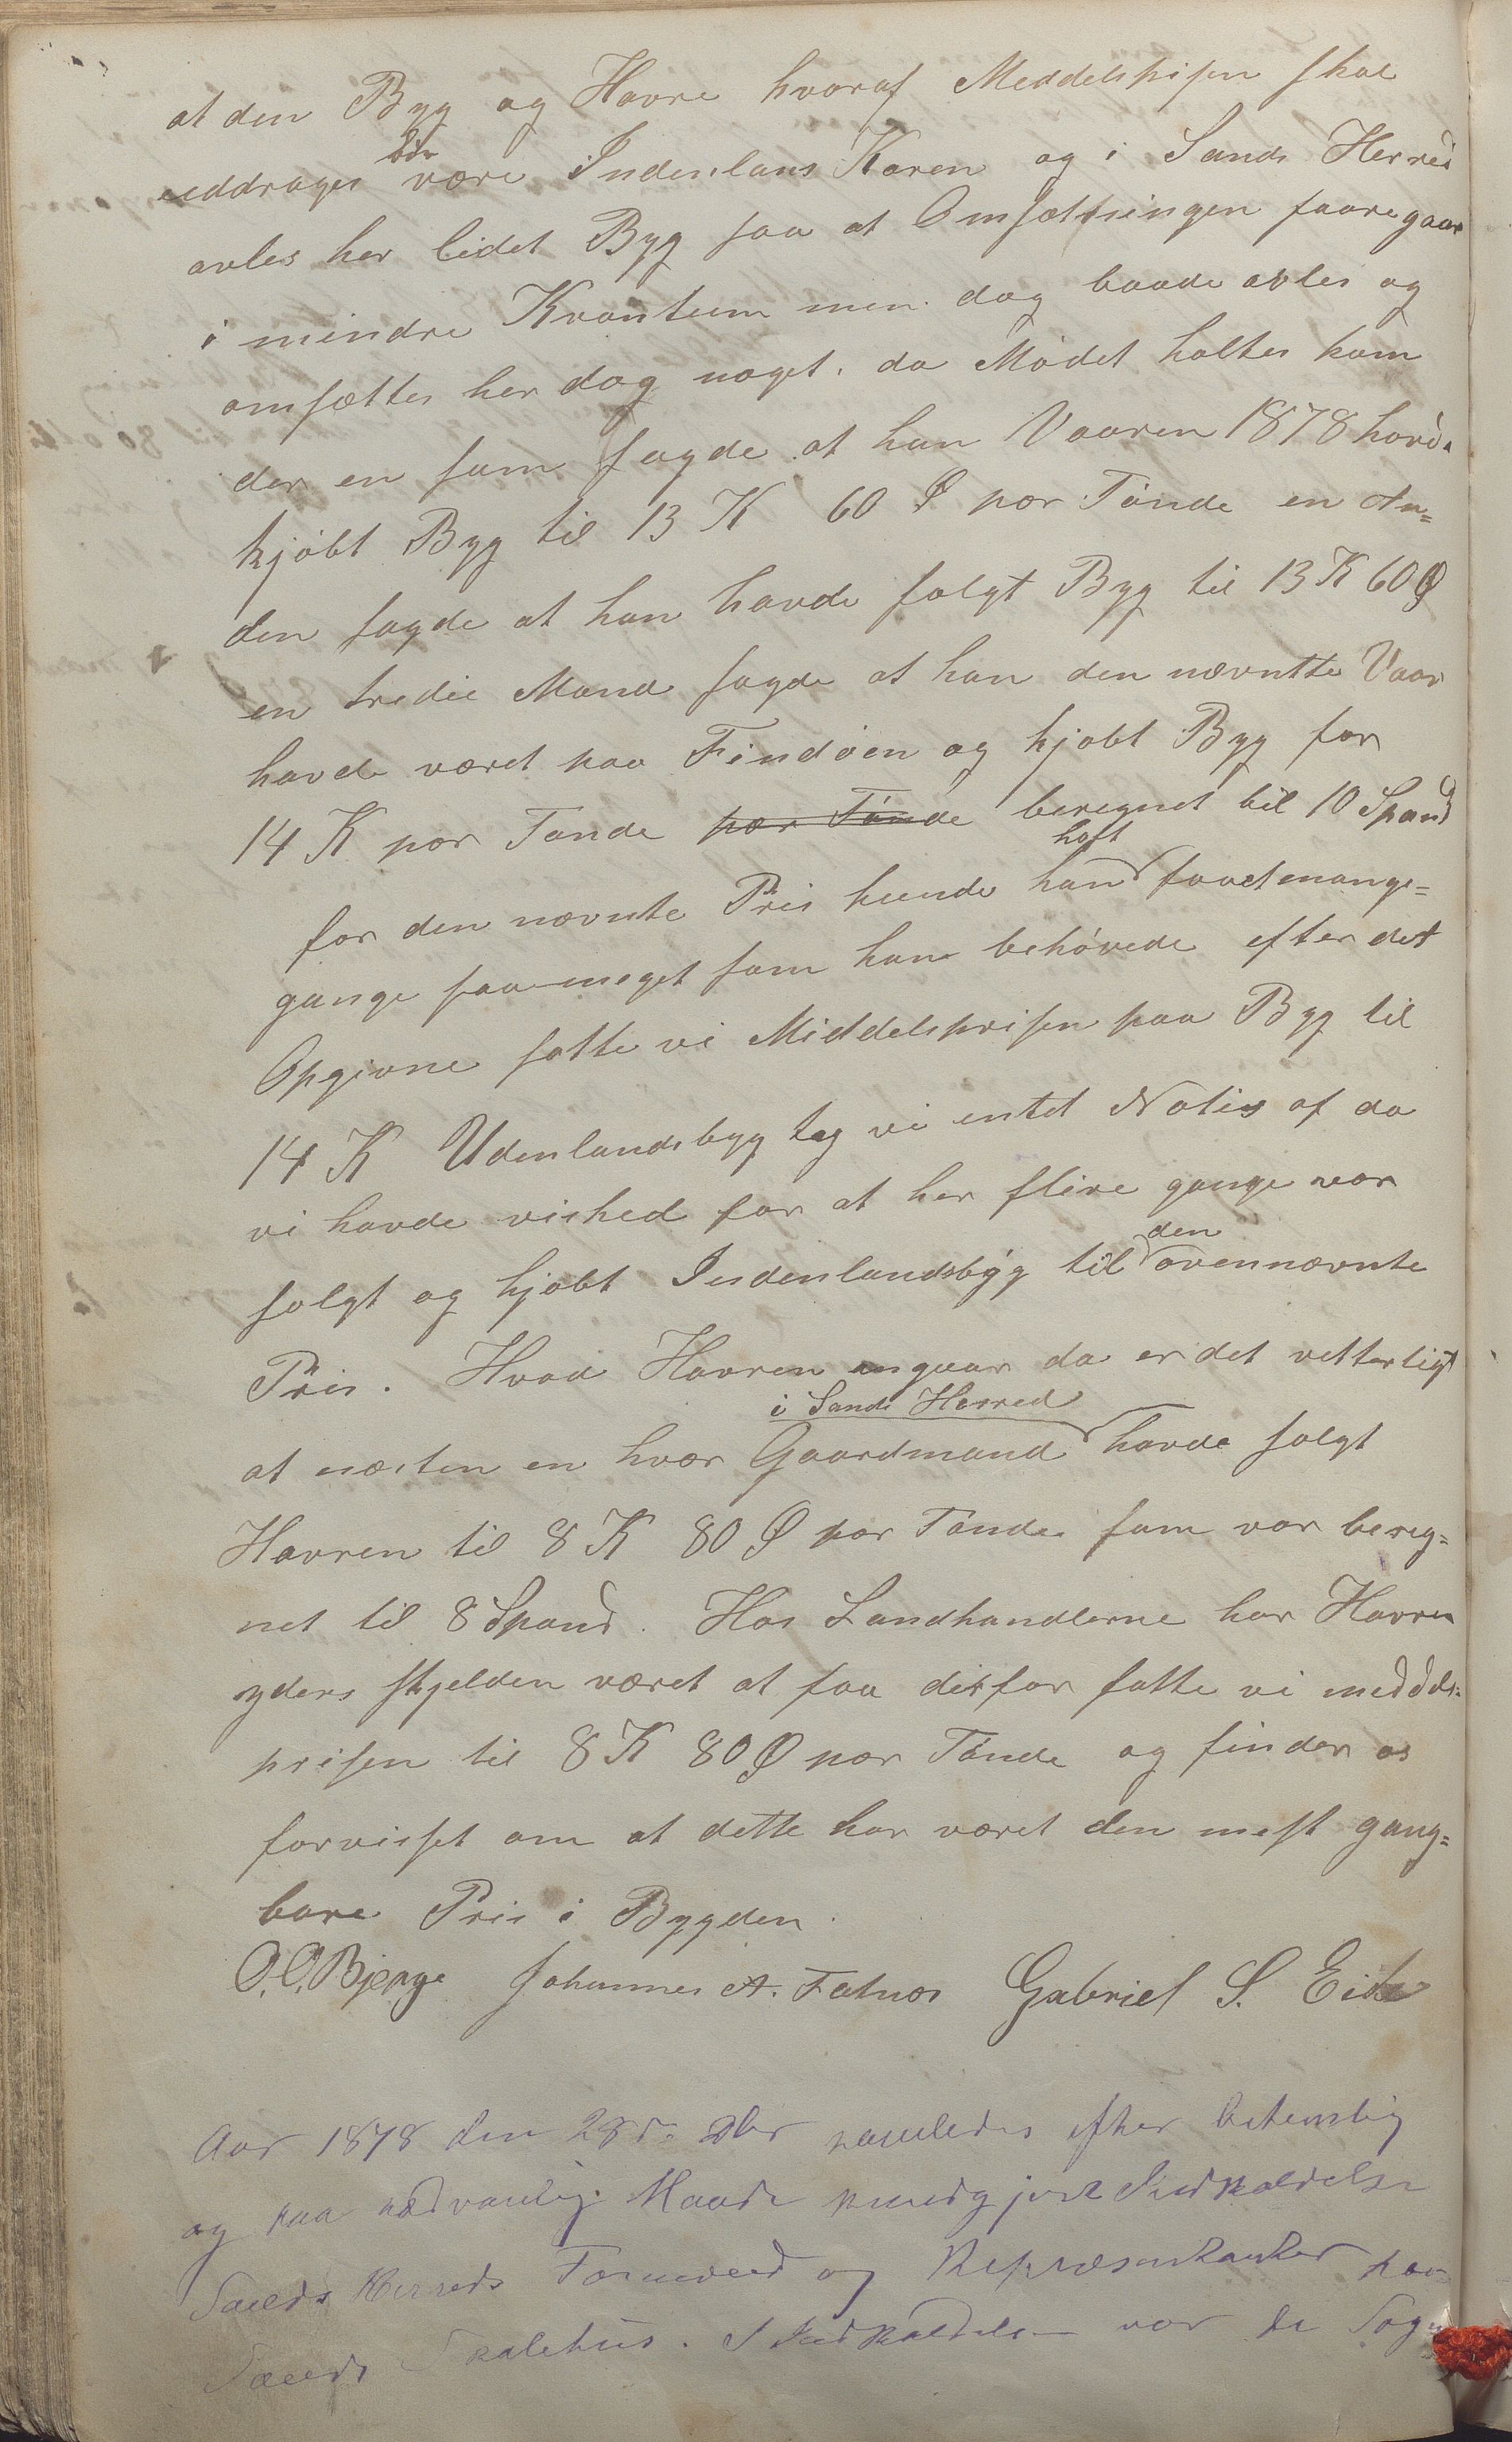 at den Byg og Havre hvoraf Meddelsprisen skal
uddrages bør være Indenlans Koren og i Sands Herred
avles her lidet Byg saa at Omsættningen foaregaar
i mindre Kvantum men dog baade avles og
omsættes her dog noget. da Mødet holtes kom
der en som sagde at han Vaaren 1878 havde
kjøbt Byg til 13 K 60 Ø por Tønde en An=
den sagde at han havde solgt Byg til 13 K 60 Ø
en tredie Mand sagde at han den nævntte Vaar
havde været paa Findøen og kjøbt Byg for
14 K por Tønde por Tønde beregnet til 10 Spand
for den nævnte Pris kunde han haft faaet mange=
gange saa meget som han behøvede efter det
Opgivne satte vi Middelsprisen paa Byg til
14 K Udenlandsbyg tog vi entet Notis af da
vi havde vished for at her flere gange var
solgt og kjøbt Indenlandsbyg til den ovennævnte
Pris. Hvad Havren angaar da er det vetterligt
at næsten en hver Gaardmand i Sands Herred havde solgt
Havren til 8 K 80 Ø por Tønde som var bereg=
net til 8 Spand. Hos Landhandlerne har Havren
yders skjelden været at faa derfor satte vi meddels=
prisen til 8 K 80 Ø por Tønde og finder os
forvisset om at dette har været den mest gang=
bare Pris i Bygden.
O. O. Bjerge Johannes A. Fatnes Gabriel S. Eide
Aar 1878 den 28de samledes efter betemlig
og paa sædvanlig Maade kundgjort Indkaldelse
Sands Herreds Formænd og Repræsentanter paa
Sands Skolehus. I Indkaldelsen var de Sogn